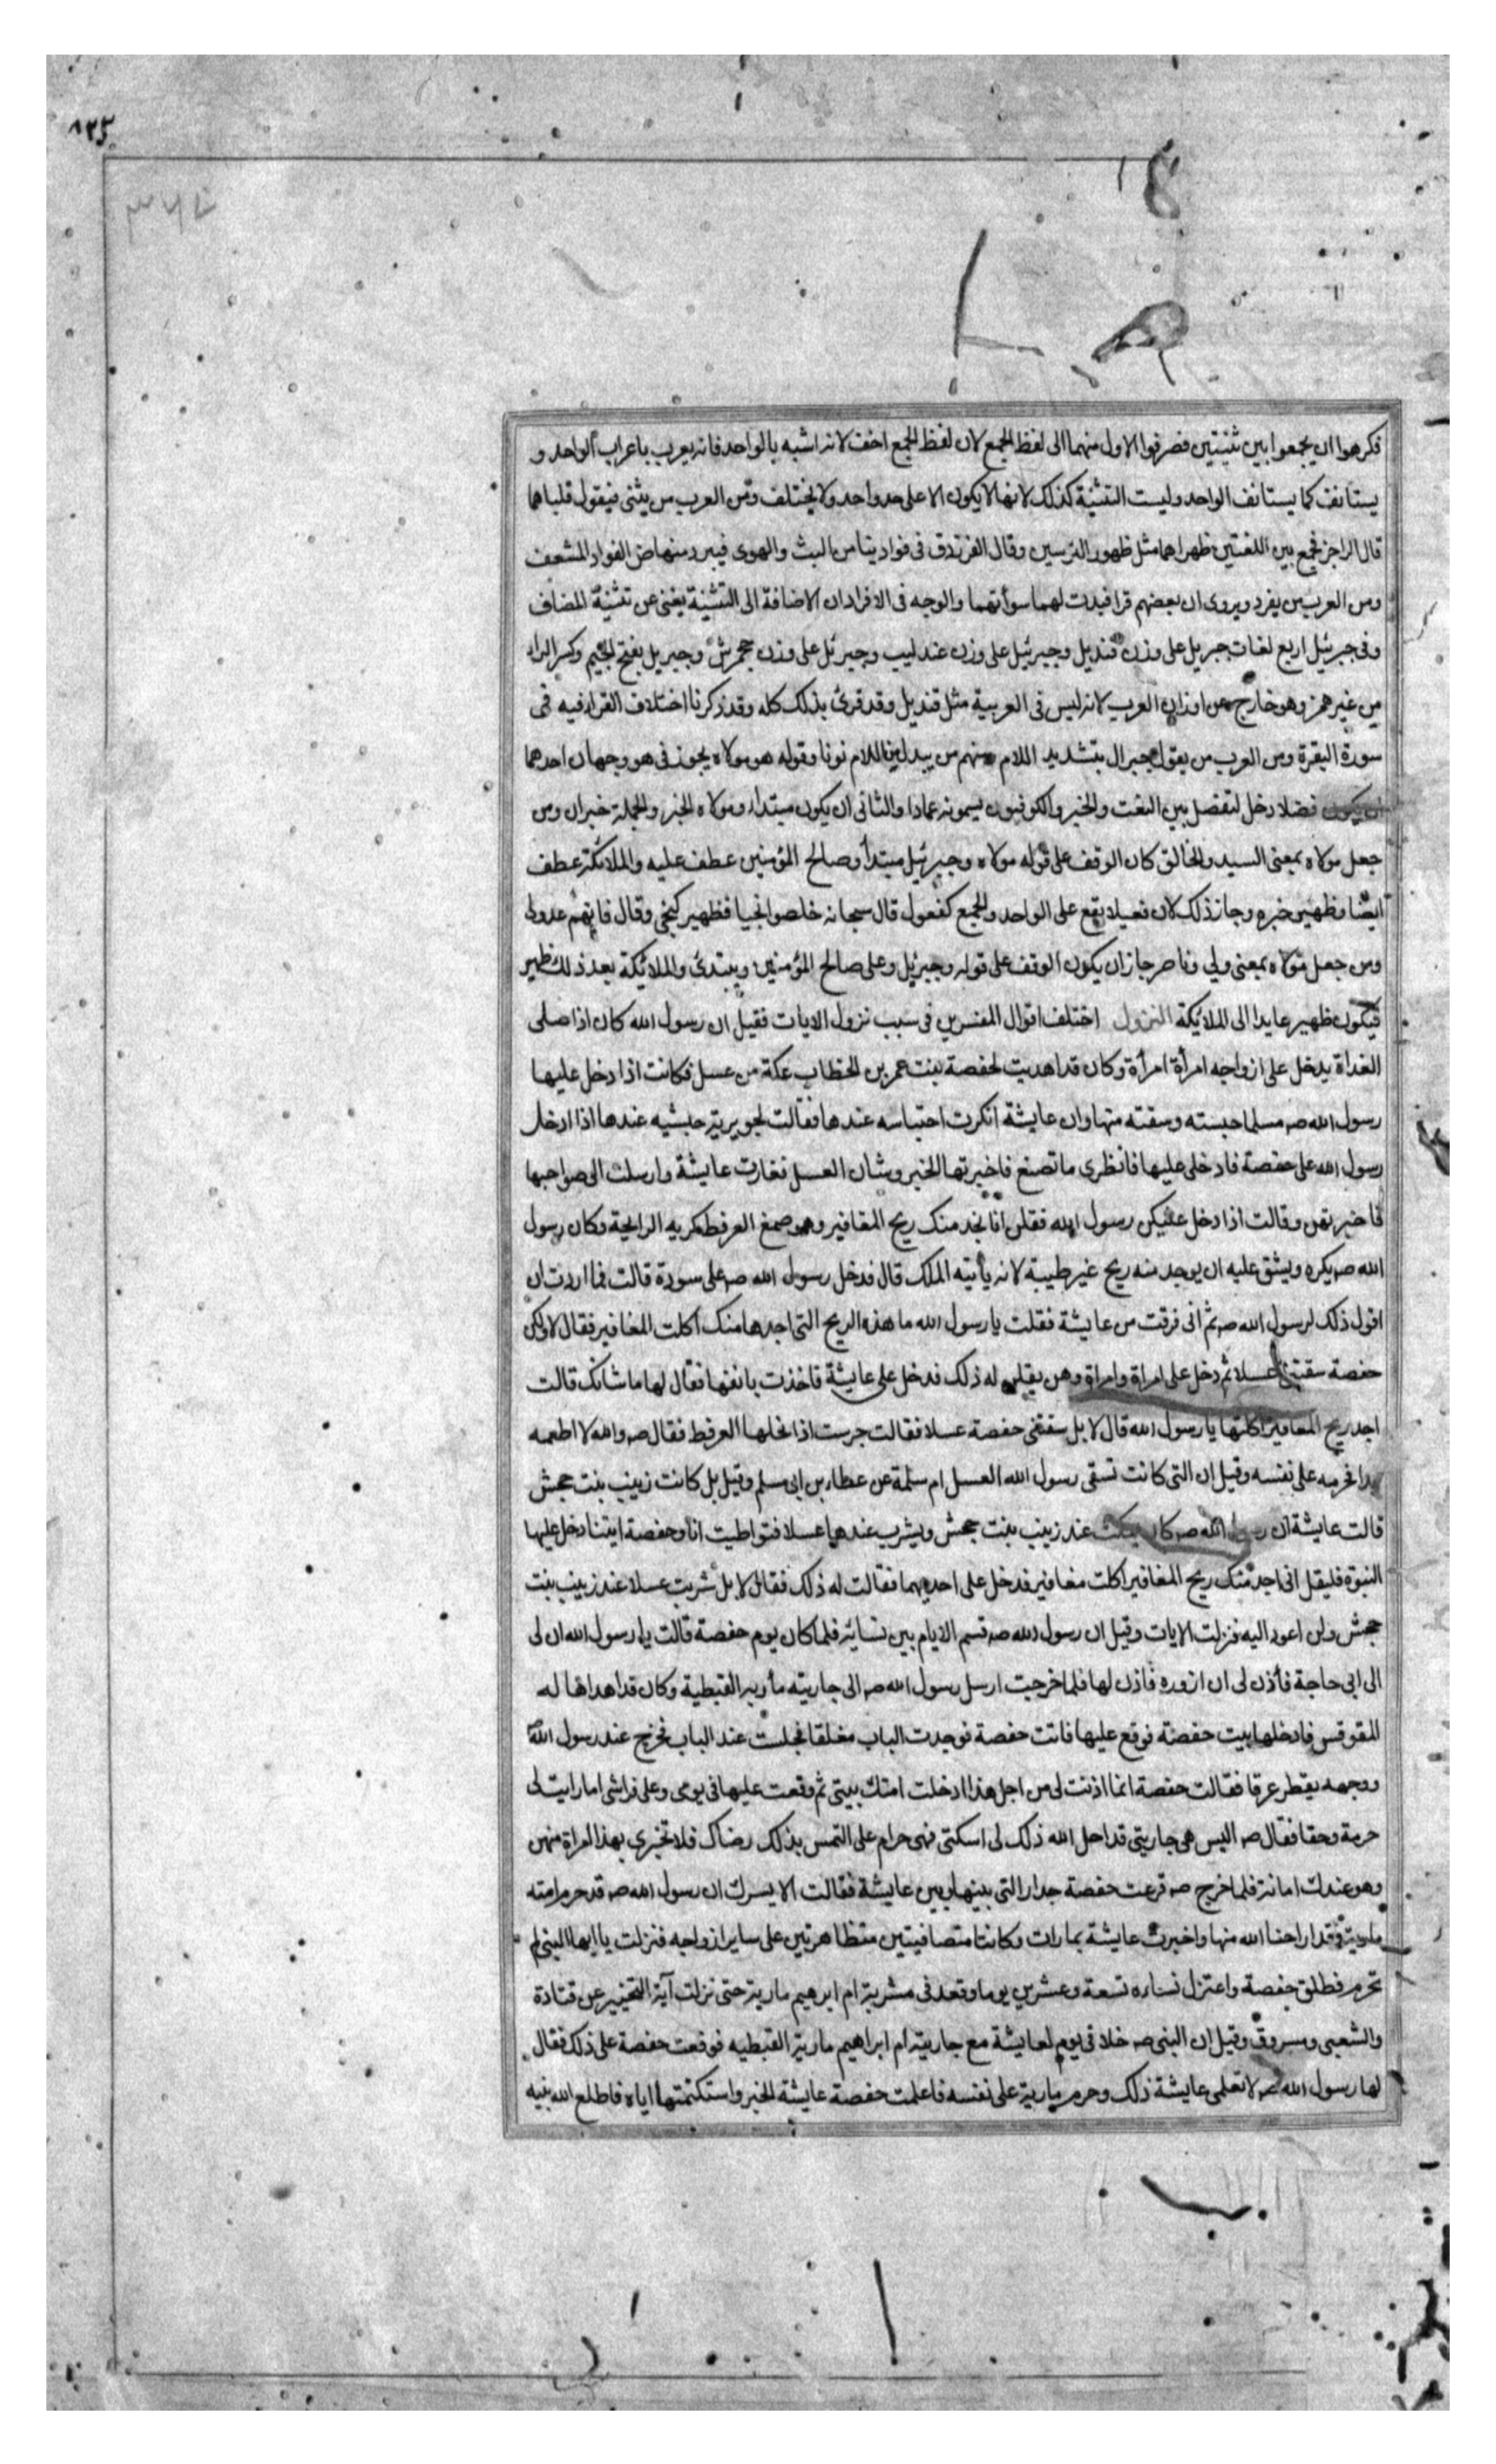 ٨٢٣
٣٧٤
فكرهوا ان يجمعوا بين تثنيتين فصرفوا الاول منهما الى لفظ الجمع لان لفظ الجمع اخف لانه اشبه بالواحد فانه يعرب باعراب الواحد و
يستانف كما يستانف الواحد وليست التثنية كذلك لانها لا يكون الا على حد واحد ولا يختلف ومن العرب من يثنى فيقول قلباهما
قال الراجز فجمع بين اللغتين ظهراهما مثل ظهور الترسين وقال الفرزدق فى فواديناس من البث والهوى فيبرد منهاض الفواد المشعف
ومن العرب من يفرد ويروى ان بعضهم قرا فبدت لهما سوأتهما والوجه فى الافراد ان الاضافة الى التثنية يغنى عن تثنية المضاف
وفى جبرئيل اربع لغات جبريل على وزن قنديل وجبرئيل على وزن عندليب وجبرئل على وزن جحمرش وجبريل بفتح الجيم وكسر الراء
من غير همز وهو خارج عن اوزان العرب لانه ليس فى العربية مثل قنديل وقد قرئ بذلك كله وقد ذكرنا اختلاف القراء فيه فى
سورة البقرة ومن العرب من يقول جبرال بتشديد اللام ومنهم من يبدل من اللام نونا وقوله هو مولاه يجوز فى هو وجهان احدهما
ان يكون فصلا دخل لتفصل بين النعت والخبر والكوفيون يسمونه عمادا والثانى ان يكون مبتداء ومولاه الخبر والجملة خبر ان ومن
جعل مولاه بمعنى السيد والخالق كان الوقف على قوله مولاه وجبرئيل مبتدأ وصالح المؤمنين عطف عليه والملائكة عطف
ايضا وظهير خبره وجاز ذلك لان فعيلا يقع على الواحد والجمع كفعول قال سبحانه خلصوا نجيا فظهير كنجى وقال فانهم عدو لى
ومن جعل مولاه بمعنى ولي وناصر جاز ان يكون الوقف على قوله وجبرئيل وعلى صالح المؤمنين ويبتدئ والملائيكة بعد ذلك ظهير
فيكون ظهير عايدا الى الملائيكة النزول اختلف اقوال المفسرين فى سبب نزول الايات فقيل ان رسول الله كان اذا صلى
الغداة يدخل على ازواجه امرأة امرأة وكان قد اهديت لحفصة بنت عمر بن الخطاب عكة من عسل فكانت اذا دخل عليها
رسول الله صه مسلما حبسته وسقته منها وان عايشة انكرت احتباسه عندها فقالت لجويرية حبشيه عندها اذا ادخل
رسول الله على حفصة فادخلى عليها فانظرى ما تصنع فاخبرتها الخبر وشان العسل فغارت عايشة وارسلت الى صواحبها
فاخبرتهن وقالت اذا دخل عليكن رسول الله فقلن انا نجد منك ريح المغافير وهو صمغ العرفط كريه الرايحة وكان رسول
الله صه يكره ويشق عليه ان يوجد منه ريح غير طيبة لانه يأتيه الملك قال فدخل رسول الله صه على سودة قالت فما اردت ان
اقول ذلك لرسول الله صه ثم انى فرقت من عايشة فقلت يا رسول الله ما هذه الريح التى اجدها منك اكلت المغافير فقال لا ولكن
حفصة سقتنى عسلا ثم دخل على امراة وامراة وهن يقلن له ذلك فدخل على عايشة فاخذت بانفها فقال لها ما شانك قالت
اجد ريح المغافير اكلتها يا رسول الله قال لا بل سقتنى حفصة عسلا فقالت جرست اذا نحلها العرفط فقال صه والله لا اطعمه
ابدا فحرمه على نفسه وقيل ان التى كانت تسقى رسول الله العسل ام سلمة عن عطاء بن ابى مسلم وقيل بل كانت زينب بنت جحش
قالت عايشة ان رسول الله صه كان يمكث عند زينب بنت جحش ويشرب عندها عسلا فتواطيت انا وحفصة ايتنا دخل عليها
النبوة فليقل انى اجد منك ريح المغافير اكلت مغافير فدخل على احديهما فقالت له ذلك فقال لا بل شربت عسلا عند زينب بنت
جحش ولن اعود اليه فنزلت الايات وقيل ان رسول الله صه قسم الايام بين نسائه فلما كان يوم حفصة قالت يا رسول الله ان لى
الى ابى حاجة فأذن لى ان ازوره فاذن لها فلما خرجت ارسل رسول الله صه الى جاريته مارية القبطية وكان قد اهداها له
المقوقس فادخلها بيت حفصة فوقع عليها فاتت حفصة فوجدت الباب مغلقا فجلست عند الباب فخرج عند رسول الله
ووجهه يقطر عرقا فقالت حفصة انما اذنت لى من اجل هذا ادخلت امتك بيتى ثم وقعت عليها فى يومى وعلى فراشى اما رايت لى
حرمة وحقا فقال صه اليس هى جاريتى قد احل الله ذلك لى اسكتى فهى حرام على التمس بذلك رضاك فلا تخبرى بهذا امراة منهن
وهو عندك امانة فلما خرج صه قرعت حفصة جدار التى بينها وبين عايشة فقالت الا يسرك ان رسول الله صه قد حرم امته
مارية وقد اراحنا الله منها واخبرت عايشة بما رات وكانتا متصافيتين متظاهرتين على ساير ازواجه فنزلت يا ايها النبى لم
تحرم فطلق حفصة واعتزل نساءه تسعة وعشرين يوما وقعد فى مشربة ام ابرهيم مارية حتى نزلت آية التخيير عن قتادة
والشعبى ومسروق وقيل ان النبى صه خلا فى يوم لعايشة مع جارية ام ابراهيم مارية القبطيه فوقعت حفصة على ذلك فقال
لها رسول الله صه لا تعلمى عايشة ذلك وحرم مارية على نفسه فاعلمت حفصة عايشة الخبر واستكتمتها اياه فاطلع الله نبيه